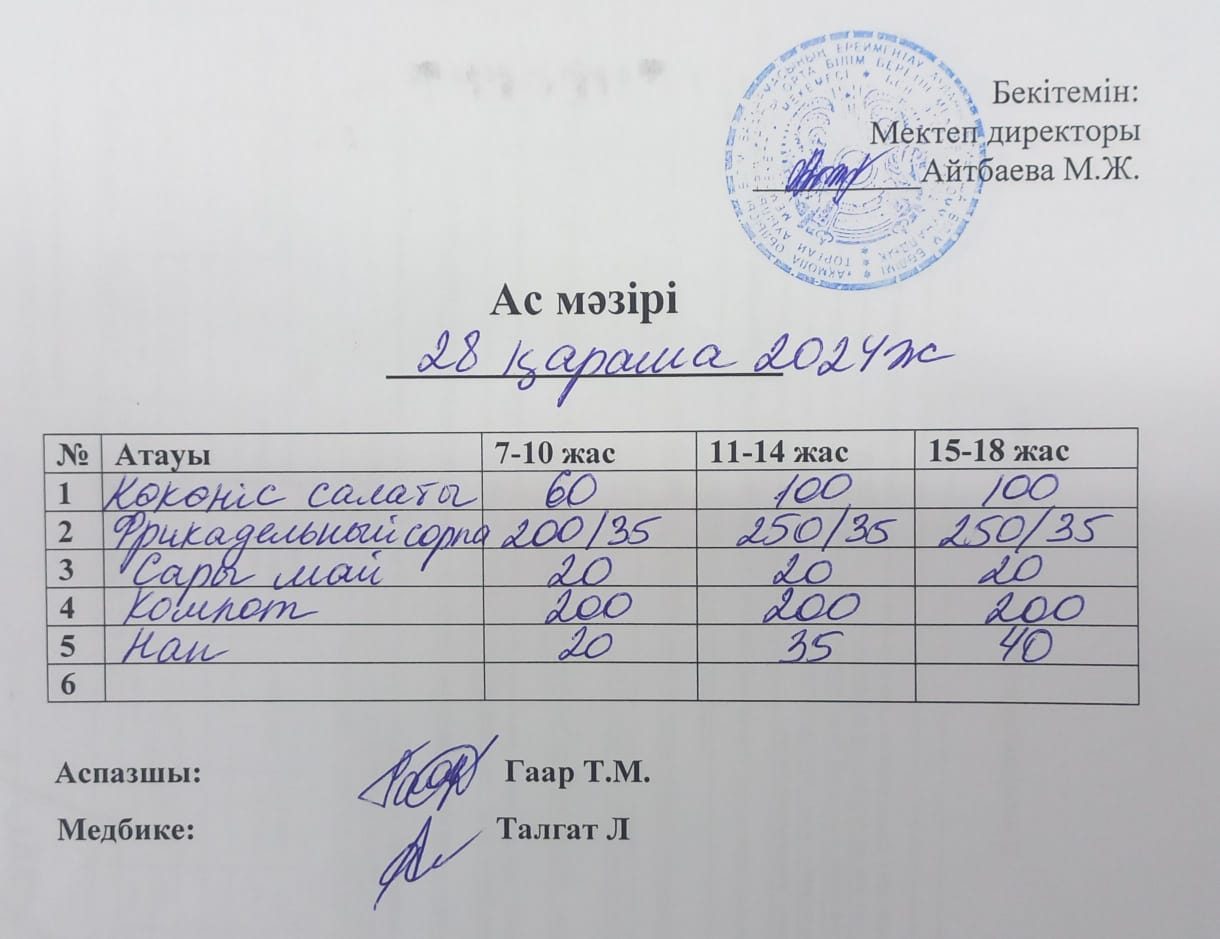 Бекітемін:
Мектеп директоры
Айтбаева М.Ж.
Ас мәзірі
28 қараша 2024ж
№ Атауы 7-10 жас 11-14 жас 15-18 жас
1 Көкөніс салаты 60 100 100
2 Фрикадельный сорпа 200/35 250/35 250/35
3 Сары май 20 20 20
4 Компот 200 200 200
5 Нан 20 35 40
6
Аспазшы: Гаар Т.М.
Медбике: Талгат Л